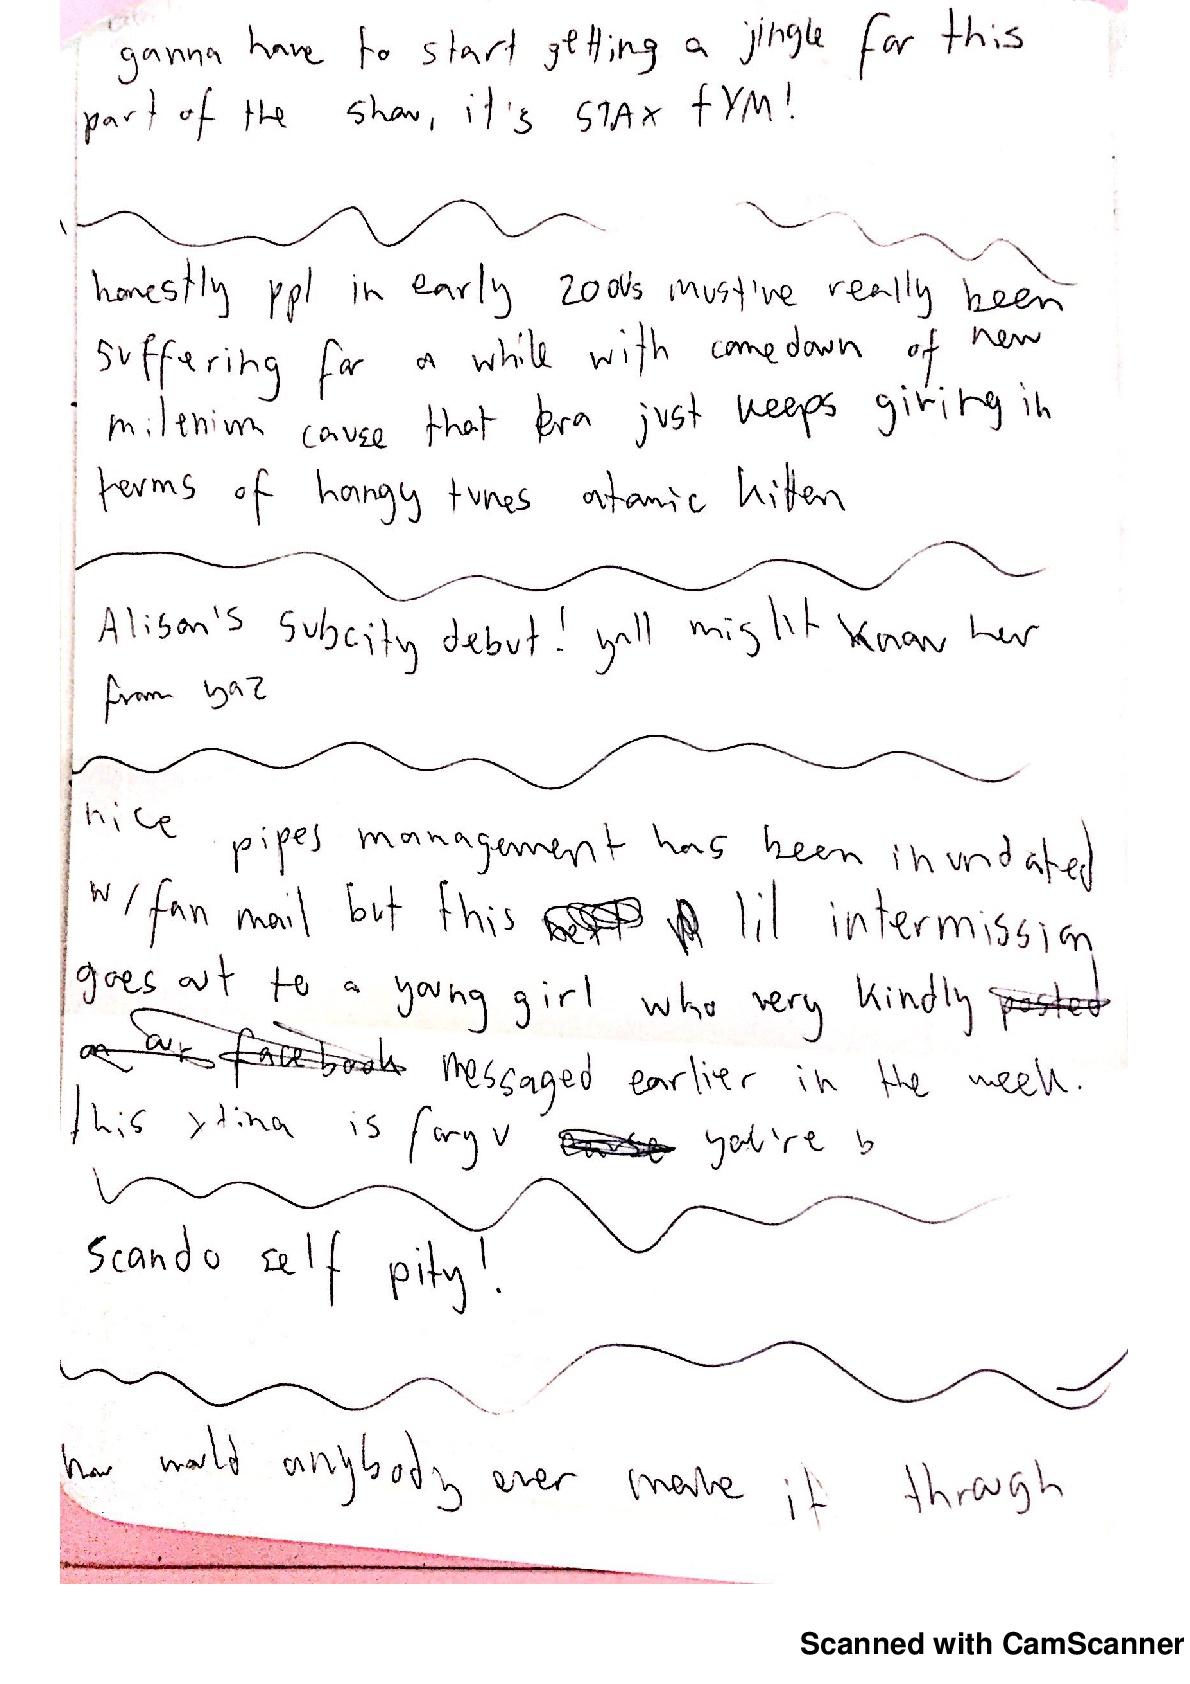 gonna have to start getting a jingle for this
part of the show, it's STAX fYM!
honestly ppl in early 2000's must've really been
suffering for a while with comedown of new
milenium cause that Era just keeps giving in
terms of hongy tunes atomic kitten
Alison's subcity debut! yall might know her
from yaz
nice pipes management has been inundated
w/ fan mail but this lil intermission
goes out to a young girl who very kindly posted
on our facebook messaged earlier in the week.
this xtina is for yu cause you're b
Scando self pity!
how would anybody ever make it through
Scanned with CamScanner